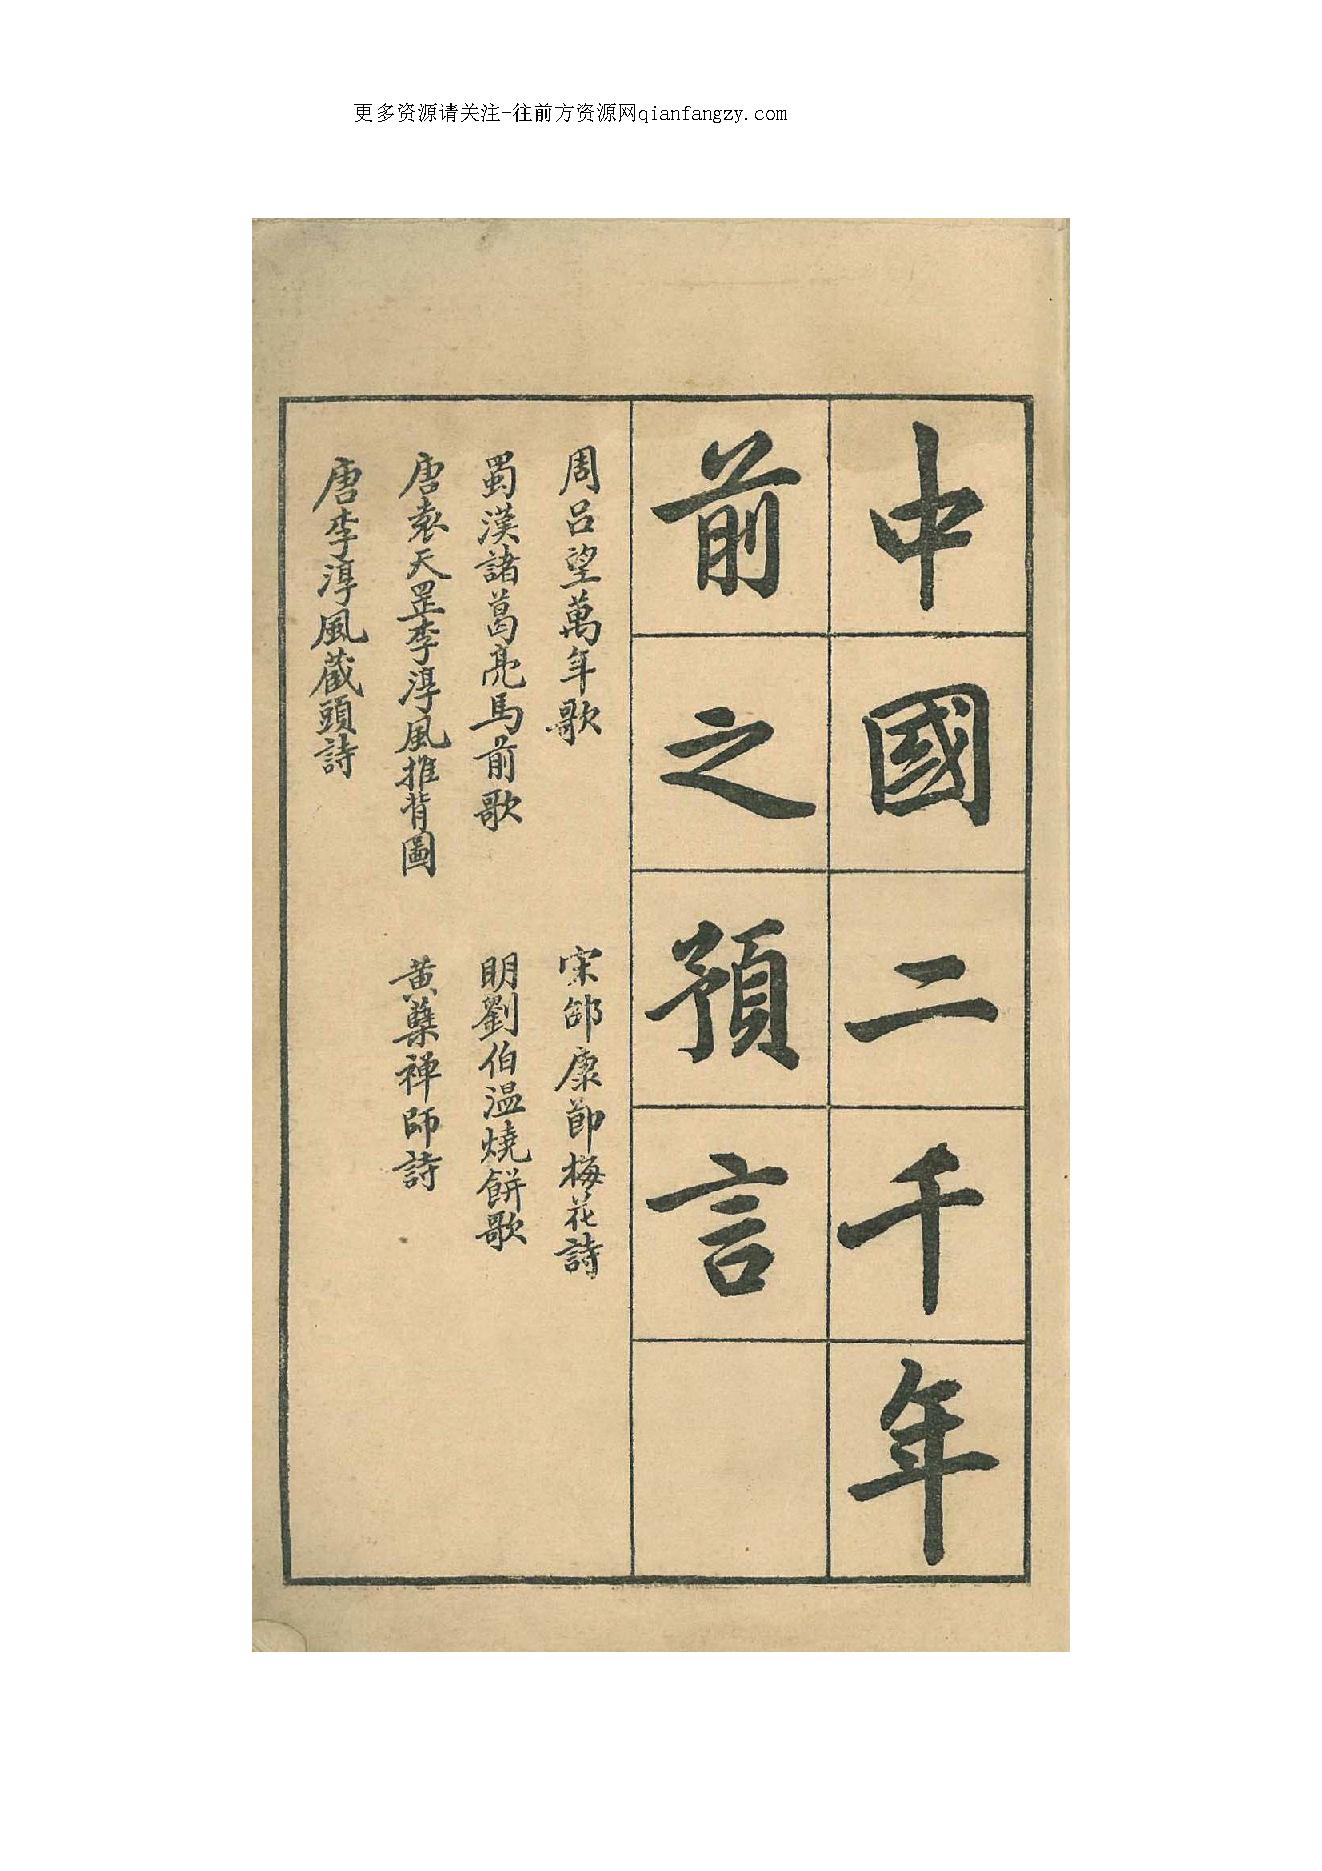 更多资源请关注-往前方资源网qianfangzy.com
中國二千年
前之預言
周呂望萬年歌
蜀漢諸葛亮馬前歌
唐袁天罡李淳風推背圖
唐李淳風藏頭詩
宋邵康節梅花詩
明劉伯温燒餅歌
黄蘖禅師詩